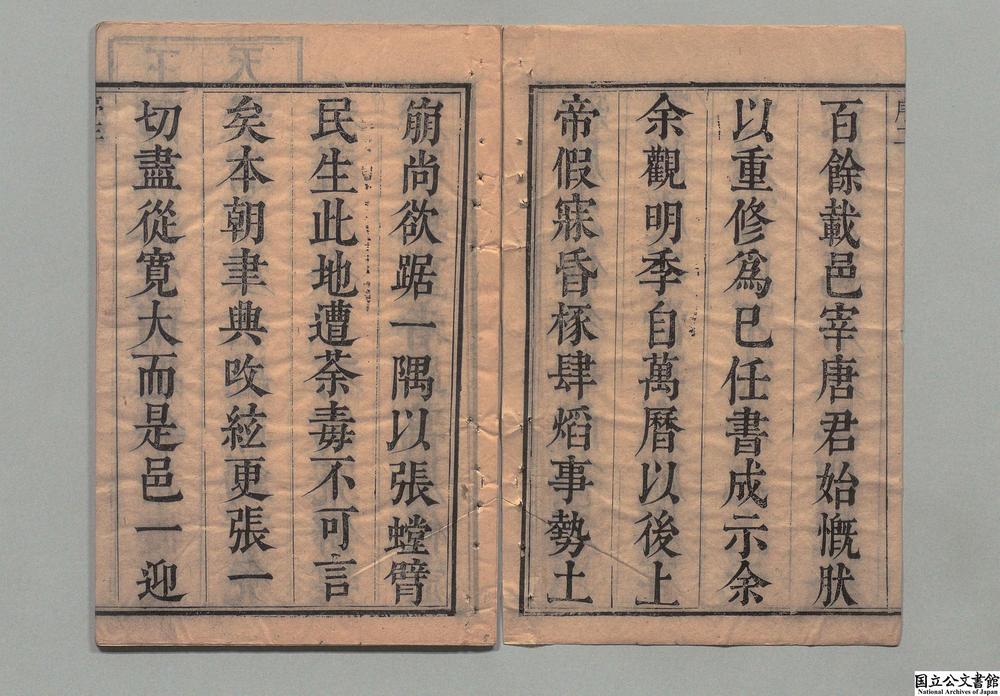 百餘載邑宰唐君始慨肰
以重修爲已任書成示余
余觀明季自萬曆以後上
帝假寐昏椓肆熖事勢土
崩尚欲踞一隅以張螳臂
民生此地遭荼毒不可言
矣本朝聿典攺絃更張一
切盡從寬大而是邑一迎
国立公文書館
National Archives of Japan